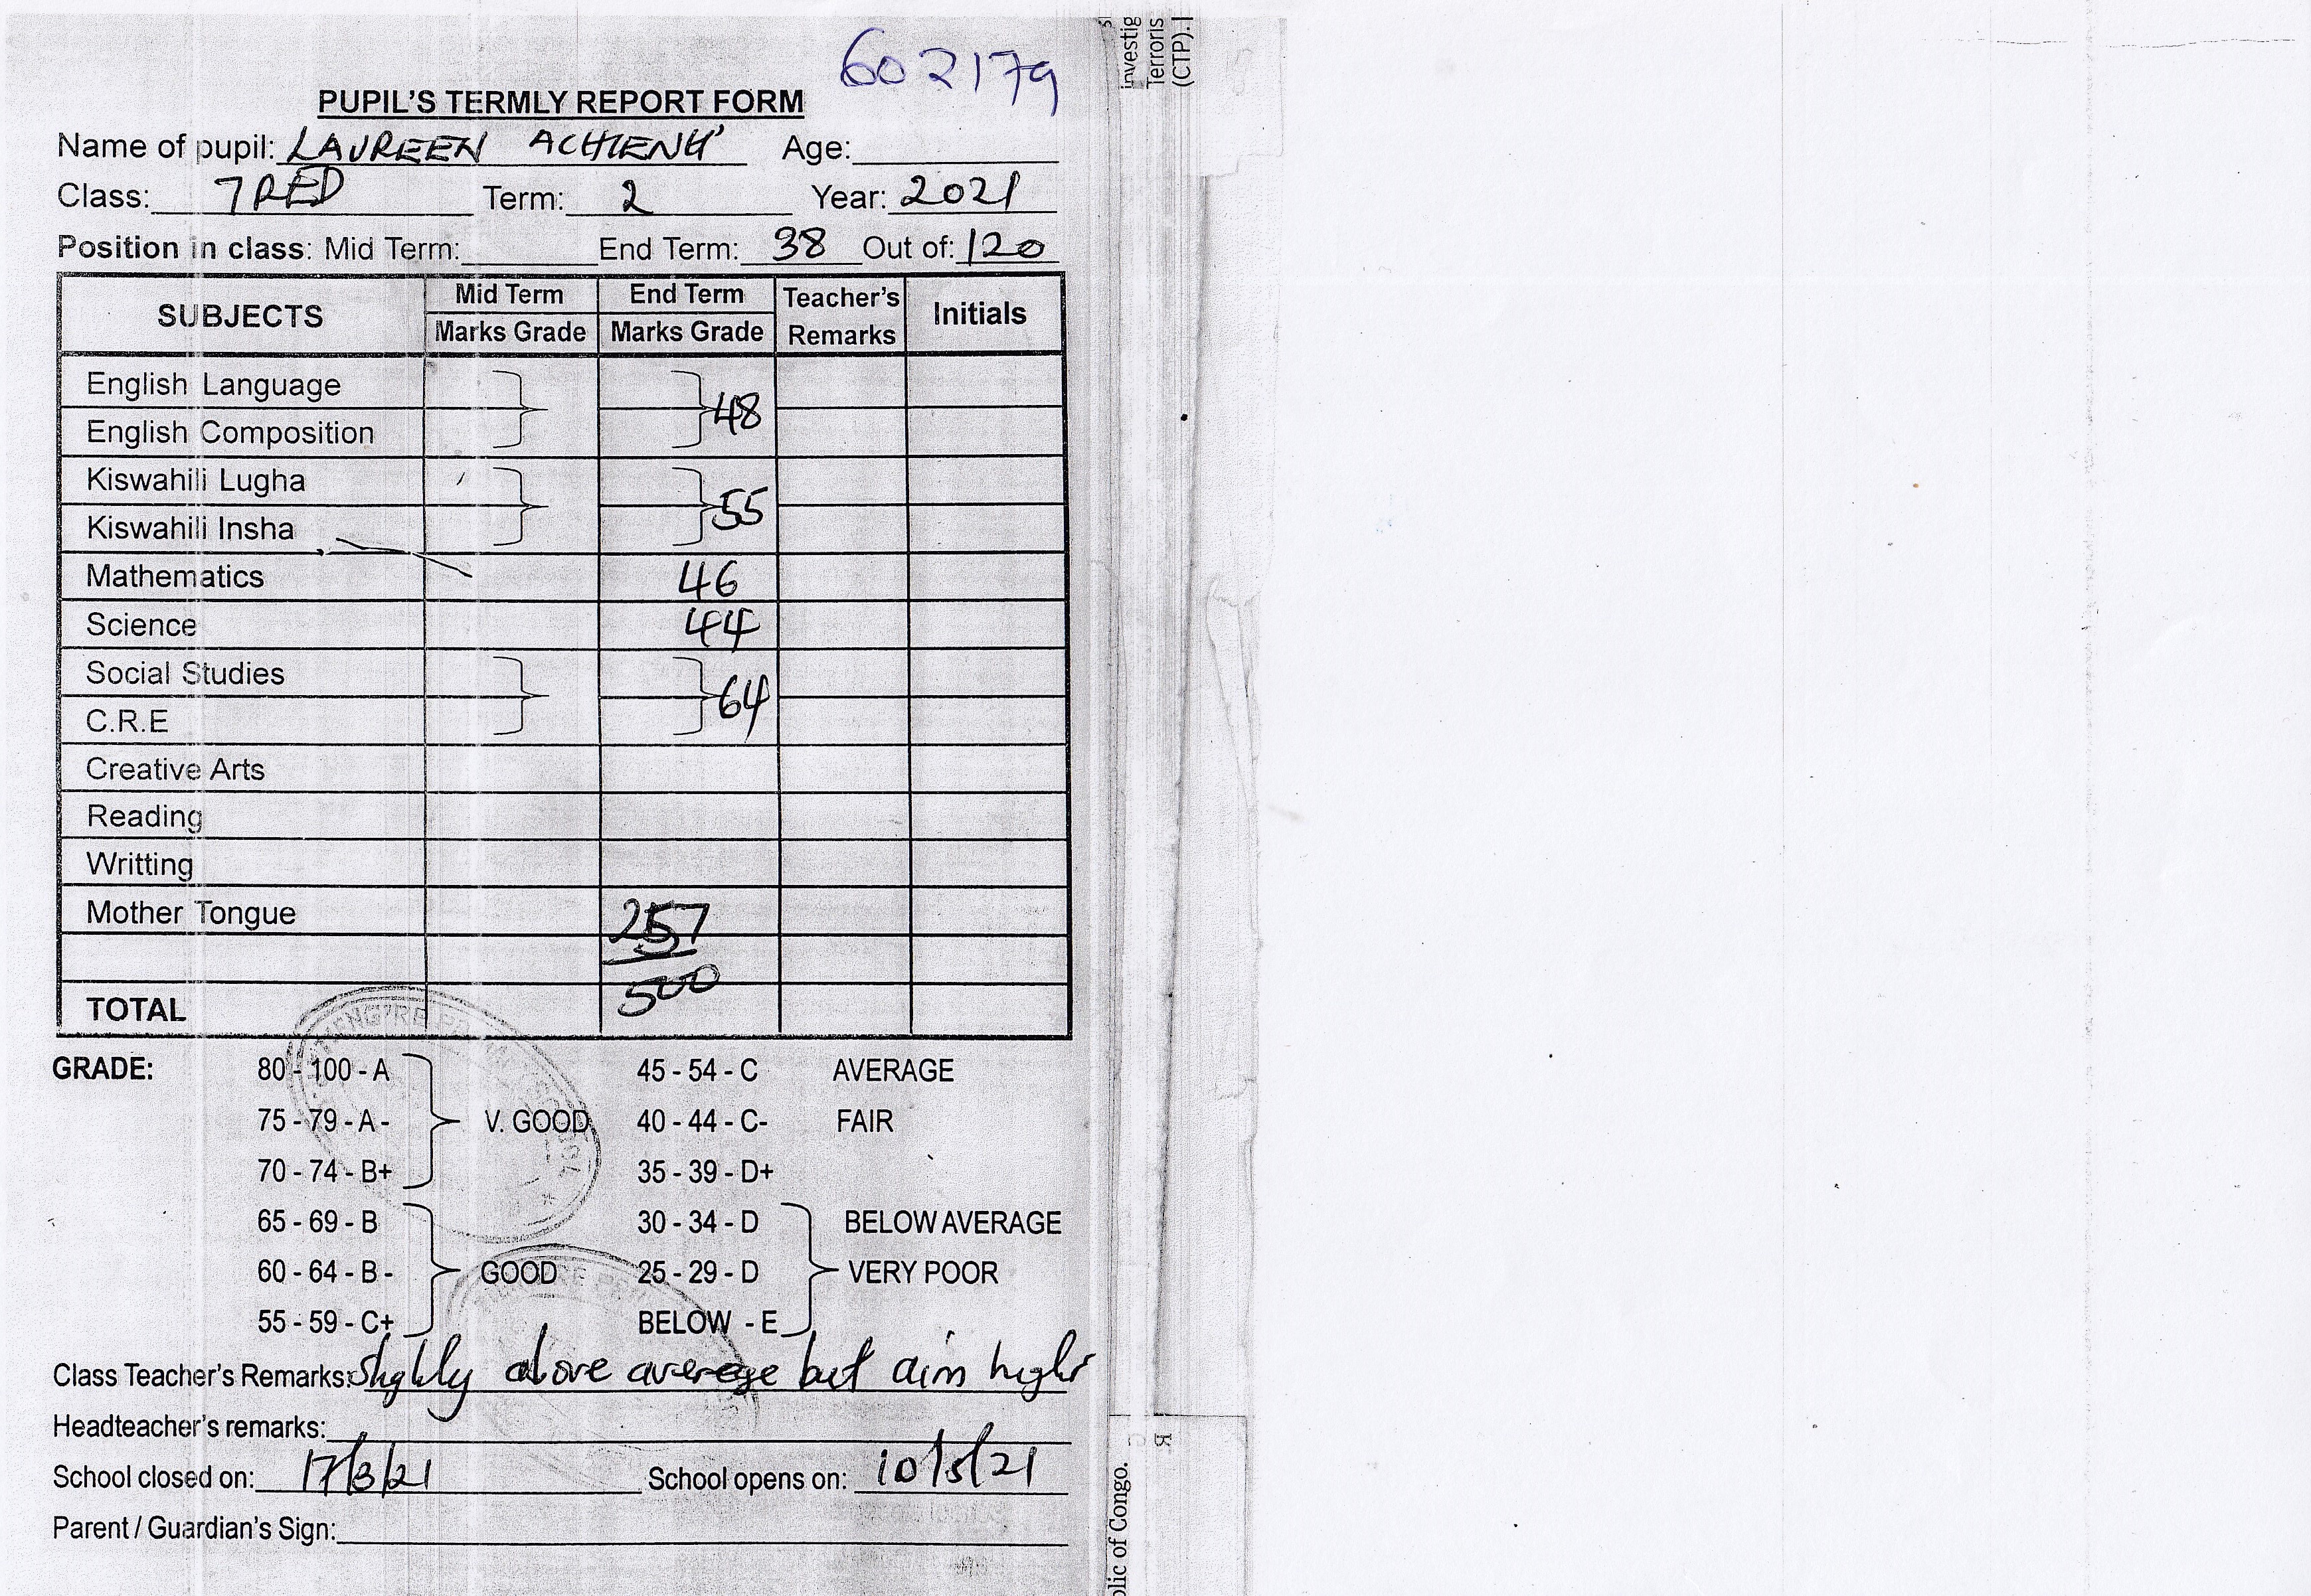 602179
investig
Terroris
(CTP).
PUPIL'S TERMLY REPORT FORM
Name of pupil: LAUREEN ACHIENG' Age:
Class: 7 RED Term: 2 Year: 2021
Position in class: Mid Term: End Term: 38 Out of: 120
SUBJECTS Mid Term End Term Teacher's Remarks Initials
Marks Grade Marks Grade
English Language
English Composition 48
Kiswahili Lugha
Kiswahili Insha 55
Mathematics 46
Science 44
Social Studies
C.R.E 64
Creative Arts
Reading
Writting
Mother Tongue 257
500
TOTAL
GRADE: 80 - 100 - A 45 - 54 - C AVERAGE
75 - 79 - A - V. GOOD 40 - 44 - C- FAIR
70 - 74 - B+ 35 - 39 - D+
65 - 69 - B 30 - 34 - D BELOW AVERAGE
60 - 64 - B - GOOD 25 - 29 - D VERY POOR
55 - 59 - C+ BELOW - E
Class Teacher's Remarks: slightly above average but aim higher
Headteacher's remarks:
School closed on: 17/3/21 School opens on: 10/5/21
Parent / Guardian's Sign:
blic of Congo.